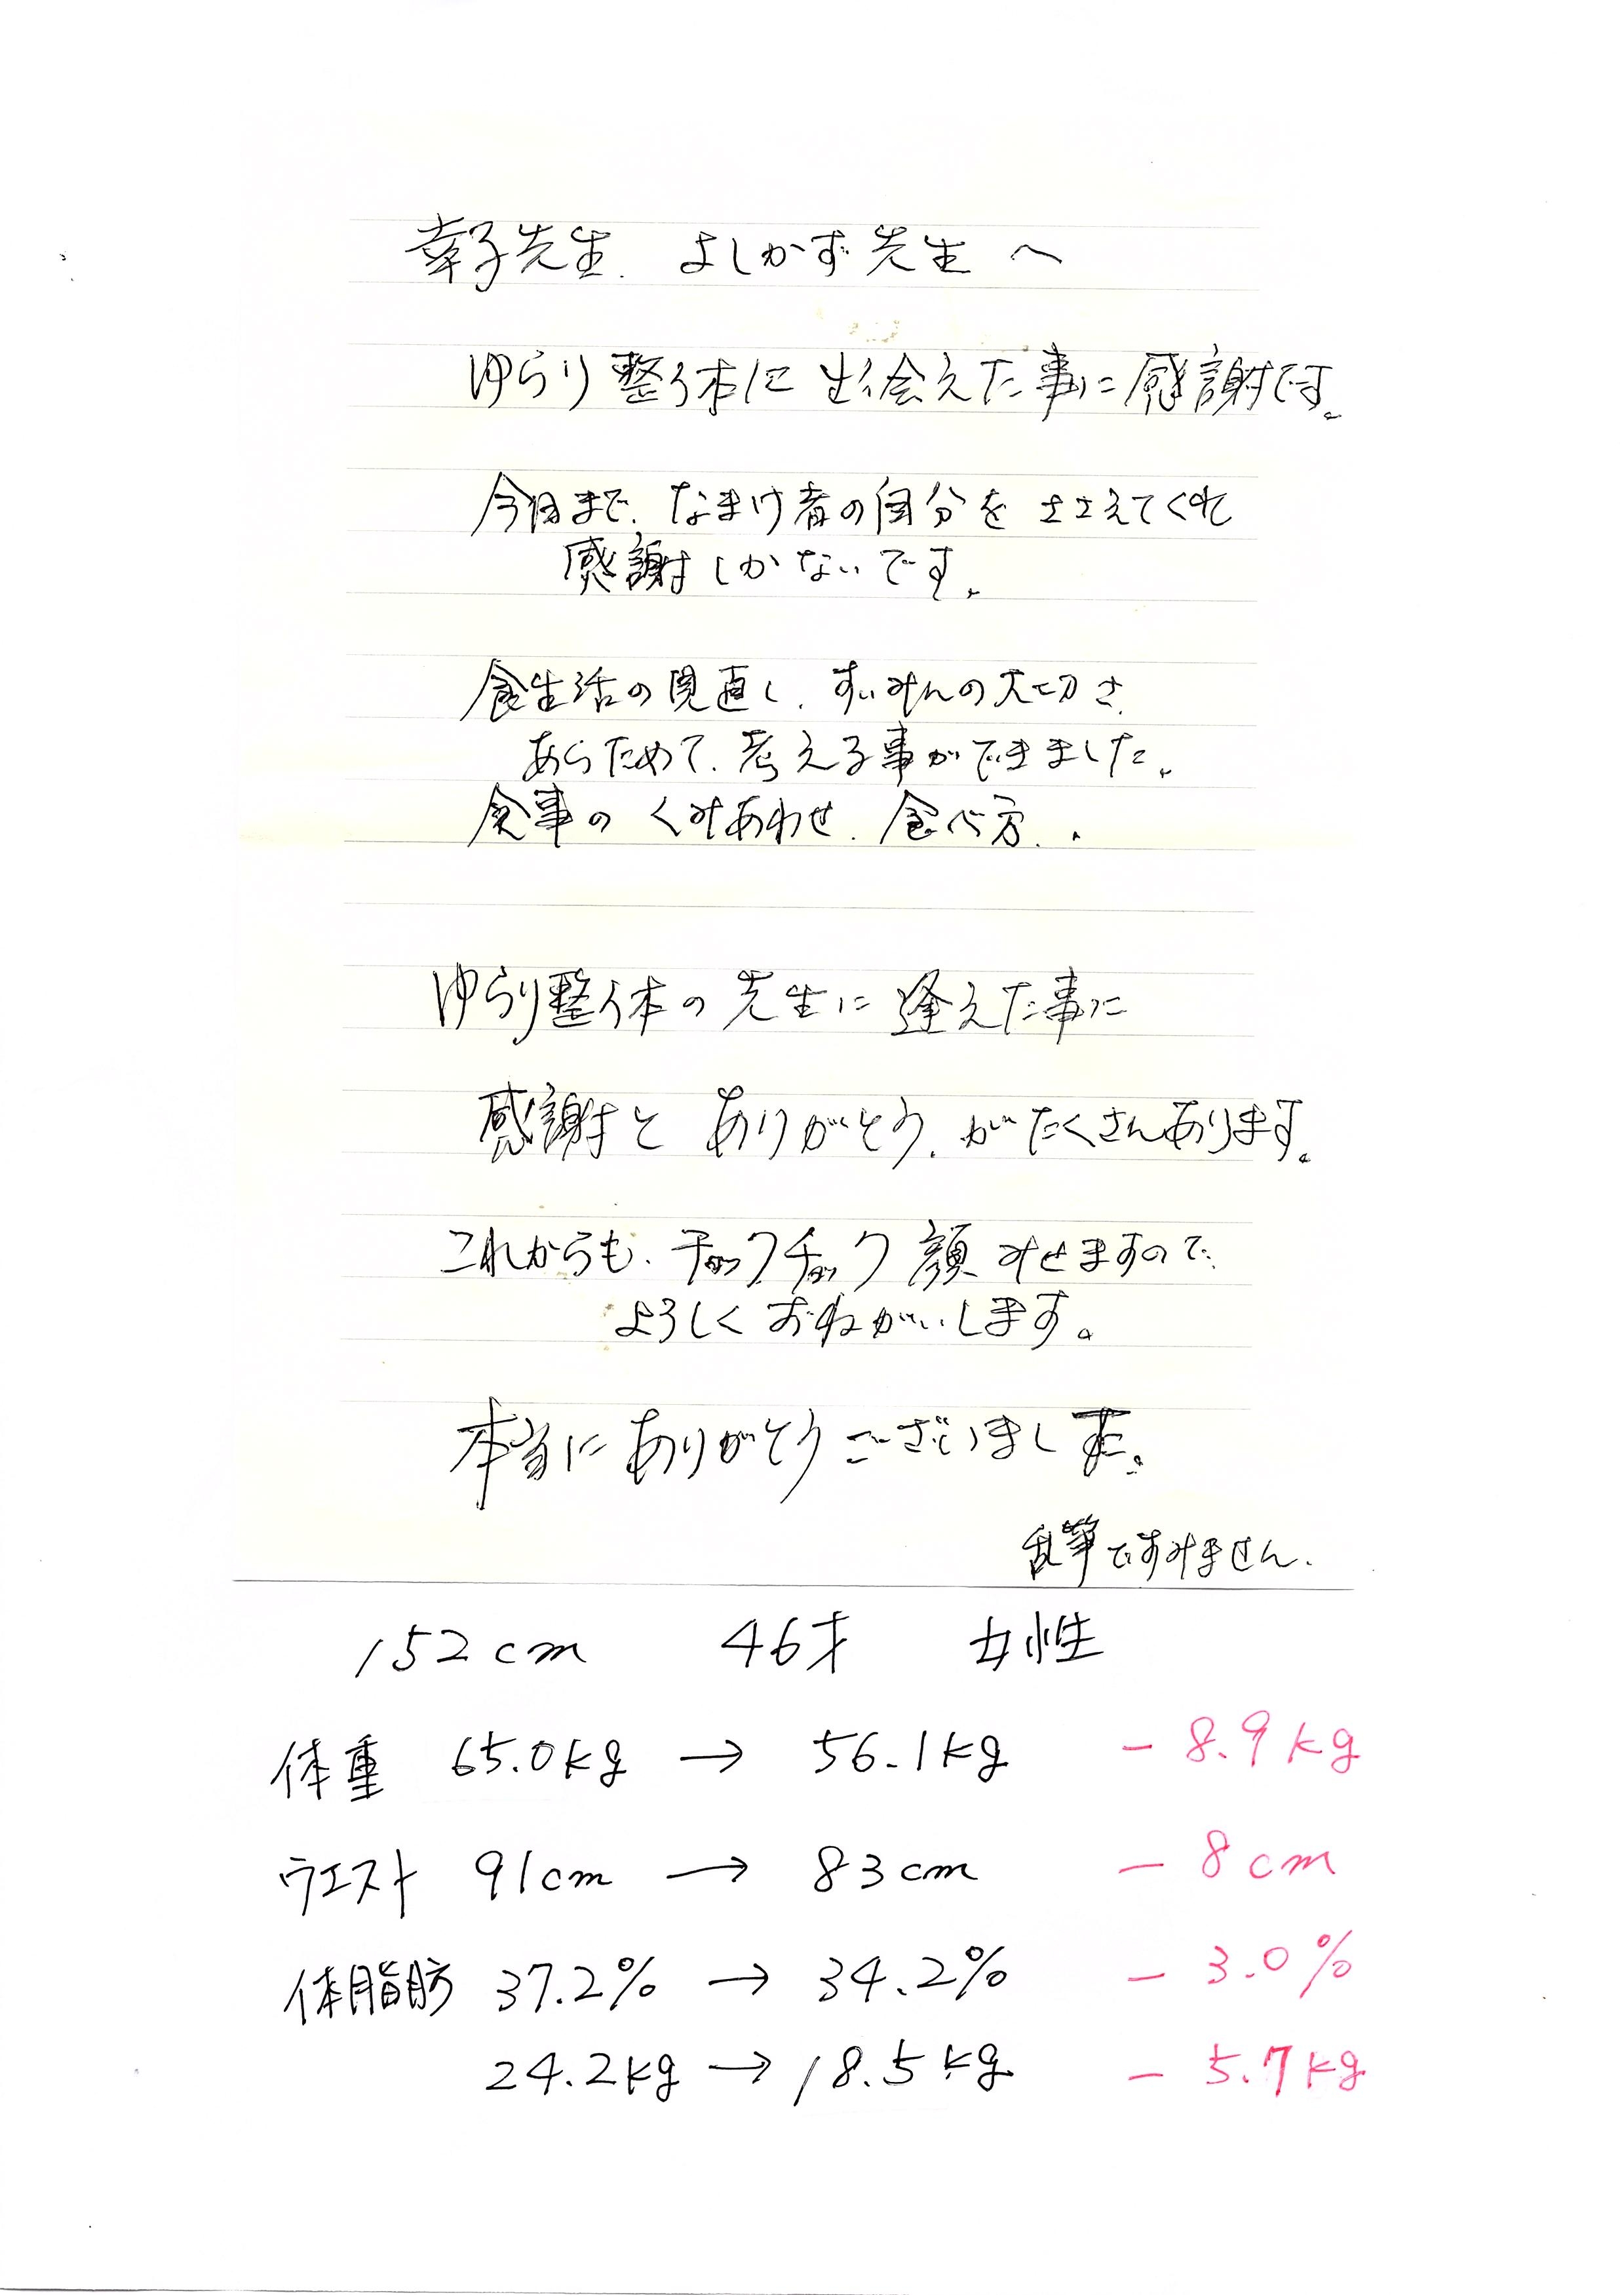 幸子先生. よしかず先生 へ
ゆらり整体に 出会えた事に感謝です。
今日まで. なまけ者の自分を ささえてくれ
感謝しかないです。
食生活の見直し. すいみんの大切さ.
あらためて. 考える事ができました。
食事の くみあわせ. 食べ方. .
ゆらり整体の 先生に 逢えた事に
感謝と ありがとう. がたくさんあります。
これからも. チョックチョック 顔 みせますので.
よろしく おねがいします。
本当に ありがとう ございました。
乱筆ですみません.
152cm 46才 女性
体重 65.0kg → 56.1kg - 8.9kg
ウエスト 91cm → 83cm - 8cm
体脂肪 37.2% → 34.2% - 3.0%
24.2kg → 18.5kg - 5.7kg